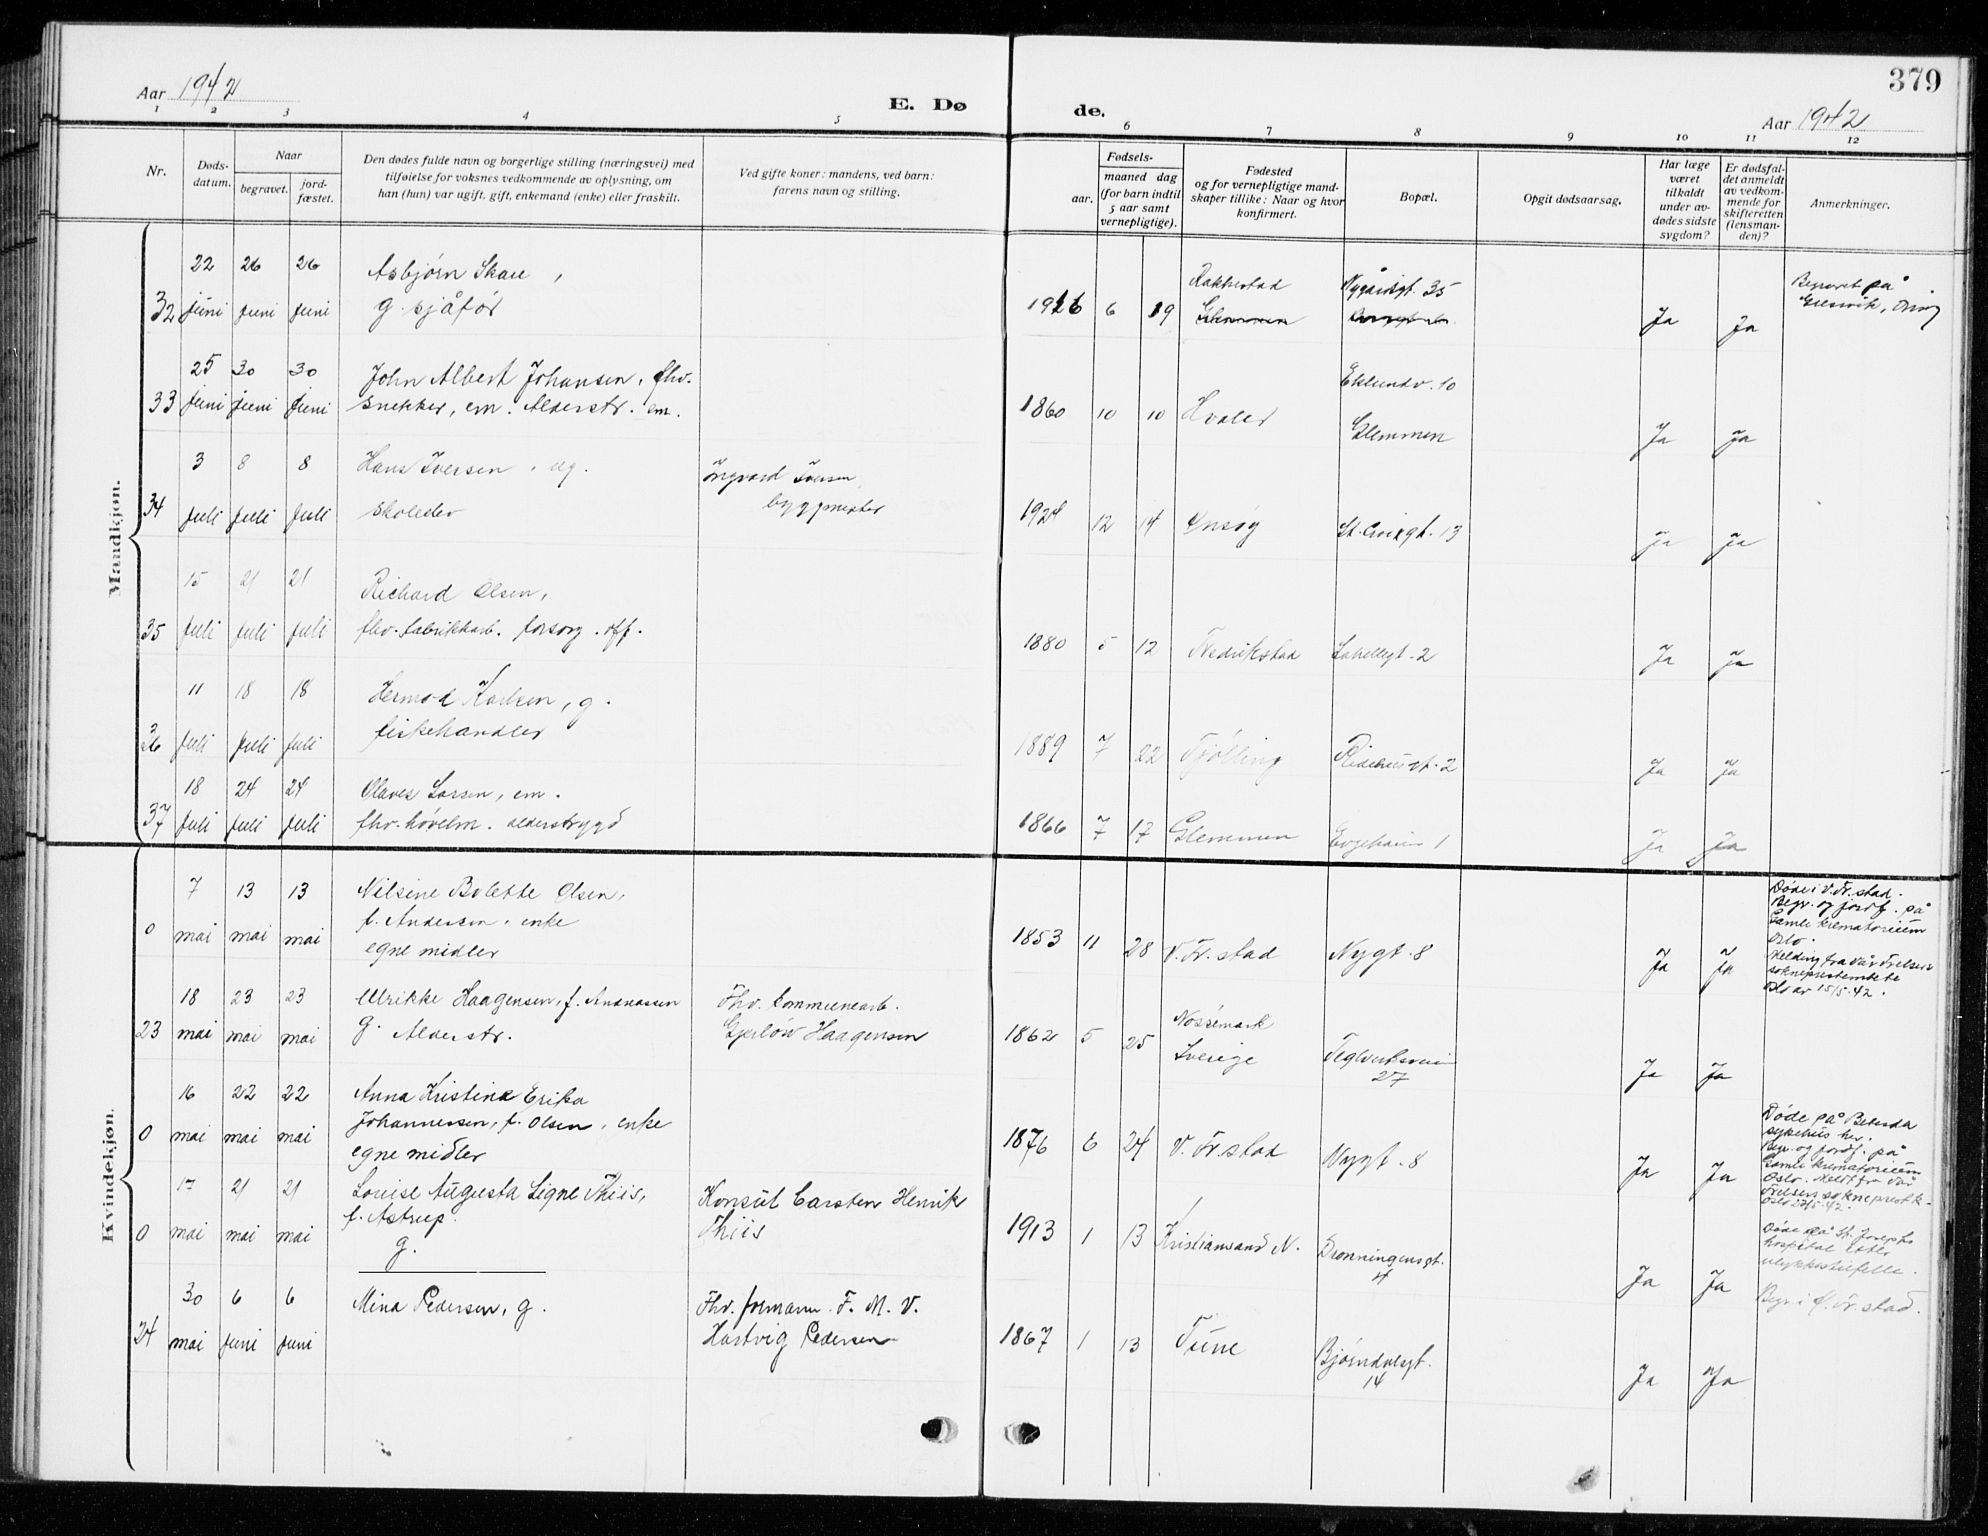 379
Aar 1942
E. Dø
de.
Aar 1942
1 2 3 4 5 6 7 8 9 10 11 12
Nr.
Døds-
datum.
Naar
begravet.
jord-
fæstet.
Den dødes fulde navn og borgerlige stilling (næringsvei) med
tilføielse for voksnes vedkommende av oplysning, om
han (hun) var ugift, gift, enkemand (enke) eller fraskilt.
Ved gifte koner: mandens, ved barn:
farens navn og stilling.
Fødsels-
aar.
maaned dag
(for barn indtil
5 aar samt
vernepligtige).
Fødested
og for vernepligtige mand-
skaper tillike: Naar og hvor
konfirmert.
Bopæl.
Opgit dødsaarsag.
Har læge
været
tilkaldt
under av-
dødes sidste
sygdom?
Er dødsfal-
det anmeldt
av vedkom-
mende for
skifteretten
(lensman-
den)?
Anmerkninger.
Mandkjøn.
32
22 juni
26 juni
26 juni
Asbjørn Skau,
g. sjåfør
6 19
Rakkestad
Glemmen
Nygårdsgt. 35
Ja
Ja
Begravet på
33
25 juni
30 juni
30 juni
John Albert Johansen, fhv.
snekker, em. Alderstr. em.
1860 10 10
Hvaler
Eklundv. 10
Glemmen
Ja
Ja
34
3 juli
8 juli
8 juli
Hans Iversen, ug.
skoleelev
Ingvard Iversen,
byggmester
1924 12 14
Onsøy
St. Croixgt. 13
Ja
Ja
35
15 juli
21 juli
21 juli
Richard Olsen,
fhv. fabrikkarb. forsorg. off.
1880 5 12
Fredrikstad
2
Ja
Ja
36
11 juli
18 juli
18 juli
Hermod Karlsen, g.
fiskehandler
1889 7 22
Tjølling
Ridehusgt. 2
Ja
Ja
37
18 juli
24 juli
24 juli
Olaves Larsen, em.
fhv. høvelm. alderstrygd
1866 7 17
Glemmen
1
Ja
Ja
Kvindekjøn.
0
7 mai
13 mai
13 mai
Nilsine Bolette Olsen,
f. Andersen, enke
egne midler
1853 11 28
V. Fr. stad
Nygt. 8
Ja
Ja
Døde i V. Fr. stad.
Begr. og jordf. på
Gamle krematorium
Oslo.
Melding fra Vår Frelsers
sokneprestembete
Oslo av 15/5-42.
23
18 mai
23 mai
23 mai
Ulrikke Haagensen, f. Andreassen
g. Alderstr.
Fhv. kommunearb.
Gjerløw Haagensen
1862 5 25
Nössemark
Sverige
Teglverksveien
27
Ja
Ja
0
16 mai
22 mai
22 mai
Anna Kristine Erika
Johannessen, f. Olsen, enke
egne midler
1876 6 24
V. Fr. stad
Nygt. 8
Ja
Ja
Døde på Betesda
sykehus her.
Begr. og jordf. på
Gamle krematorium
Oslo. Meldt fra Vår
Frelsers sokneprestk.
Oslo 22/5-42.
0
17 mai
21 mai
21 mai
Louise Augusta Signe Thiis,
f. Astrup.
g.
Konsul Carsten Henrik
Thiis
1913 1 13
Kristiansand N.
Dronningensgt.
4
Ja
Ja
Døde på St. Josephs
hospital etter
ulykkestilfelle.
Begr. i Ø. Fr. stad.
24
30 mai
6 juni
6 juni
Mina Pedersen, g.
Fhv. formann F. M. V.
Hartvig Pedersen
1867 1 13
Tune
Bjørndalsgt.
14
Ja
Ja